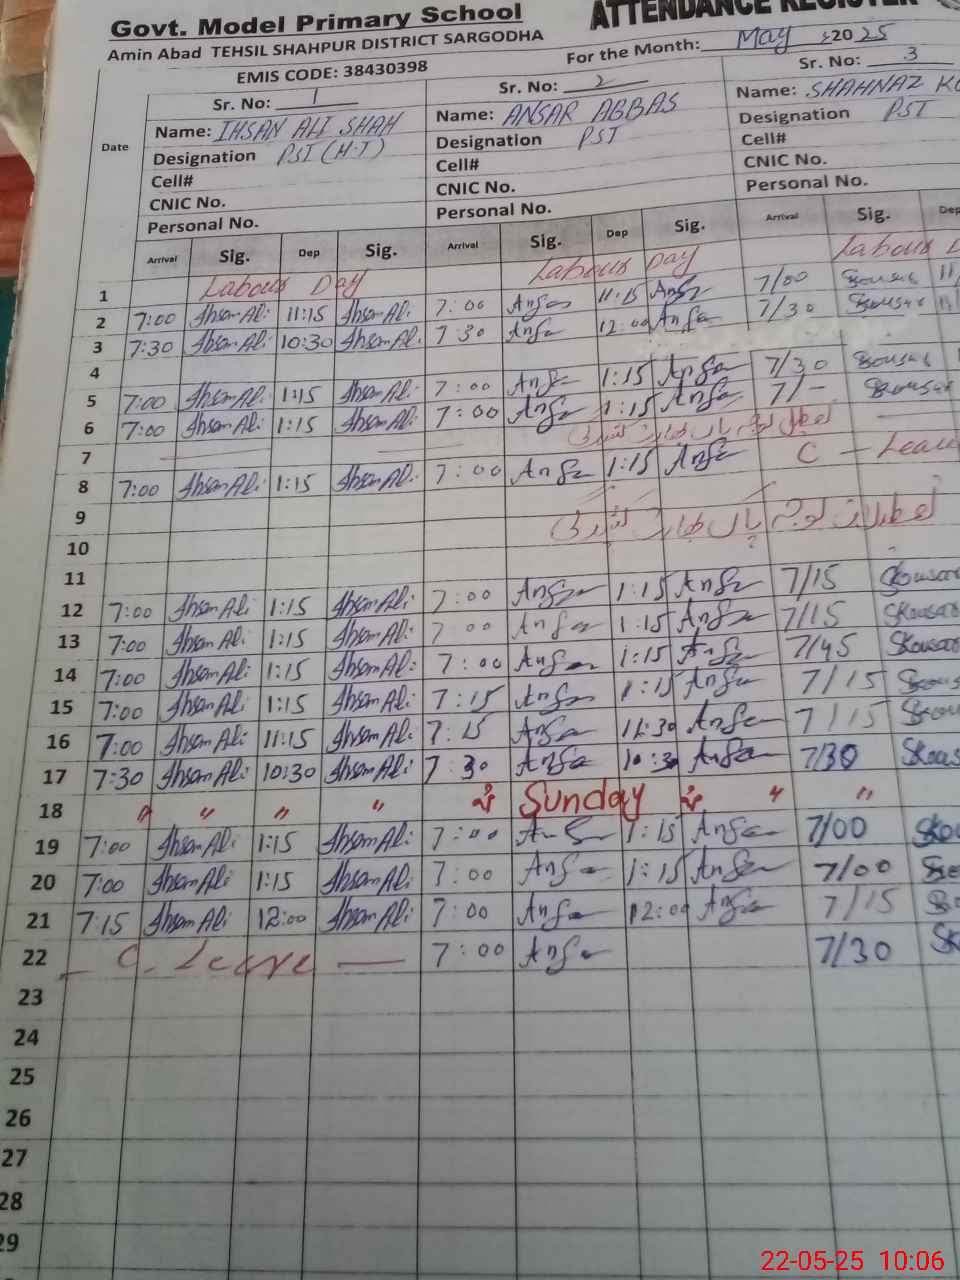 Govt. Model Primary School ATTENDANCE REGISTER
Amin Abad TEHSIL SHAHPUR DISTRICT SARGODHA
EMIS CODE: 38430398 For the Month: May 2025
Date Sr. No: 1 Sr. No: 2 Sr. No: 3
Name: IHSAN ALI SHAH Name: ANSAR ABBAS Name: SHAHNAZ
Designation PST (H.T) Designation PST Designation PST
Cell# Cell# Cell#
CNIC No. CNIC No. CNIC No.
Personal No. Personal No. Personal No.
Arrival Sig. Dep Sig. Arrival Sig. Dep Sig. Arrival Sig. Dep
1 Labour Day Labour Day Labour
2 7:00 Ihsan Ali 11:15 Ihsan Ali 7:00 Ansar 11:15 Ansar 7/00
3 7:30 Ihsan Ali 10:30 Ihsan Ali 7 30 Ansar 12:00 Ansar 7/30
4
5 7:00 Ihsan Ali 1:15 Ihsan Ali 7:00 Ansar 1:15 Ansar 7/30
6 7:00 Ihsan Ali 1:15 Ihsan Ali 7:00 Ansar 1:15 Ansar 7/-
7
8 7:00 Ihsan Ali 1:15 Ihsan Ali 7:00 Ansar 1:15 Ansar C - Leave
9
10
11
12 7:00 Ihsan Ali 1:15 Ihsan Ali 7:00 Ansar 1:15 Ansar 7/15
13 7:00 Ihsan Ali 1:15 Ihsan Ali 7:00 Ansar 1:15 Ansar 7/15
14 7:00 Ihsan Ali 1:15 Ihsan Ali 7:00 Ansar 1:15 Ansar 7/45
15 7:00 Ihsan Ali 1:15 Ihsan Ali 7:15 Ansar 1:15 Ansar 7/15
16 7:00 Ihsan Ali 11:15 Ihsan Ali 7:15 Ansar 11:30 Ansar 7/15
17 7:30 Ihsan Ali 10:30 Ihsan Ali 7 30 Ansar 10:30 Ansar 7/30
18 " " " " Sunday " "
19 7:00 Ihsan Ali 1:15 Ihsan Ali 7:00 Ansar 1:15 Ansar 7/00
20 7:00 Ihsan Ali 1:15 Ihsan Ali 7:00 Ansar 1:15 Ansar 7/00
21 7:15 Ihsan Ali 12:00 Ihsan Ali 7:00 Ansar 12:00 Ansar 7/15
22 C. Leave 7:00 Ansar 7/30
23
24
25
26
27
28
29
22-05-25 10:06